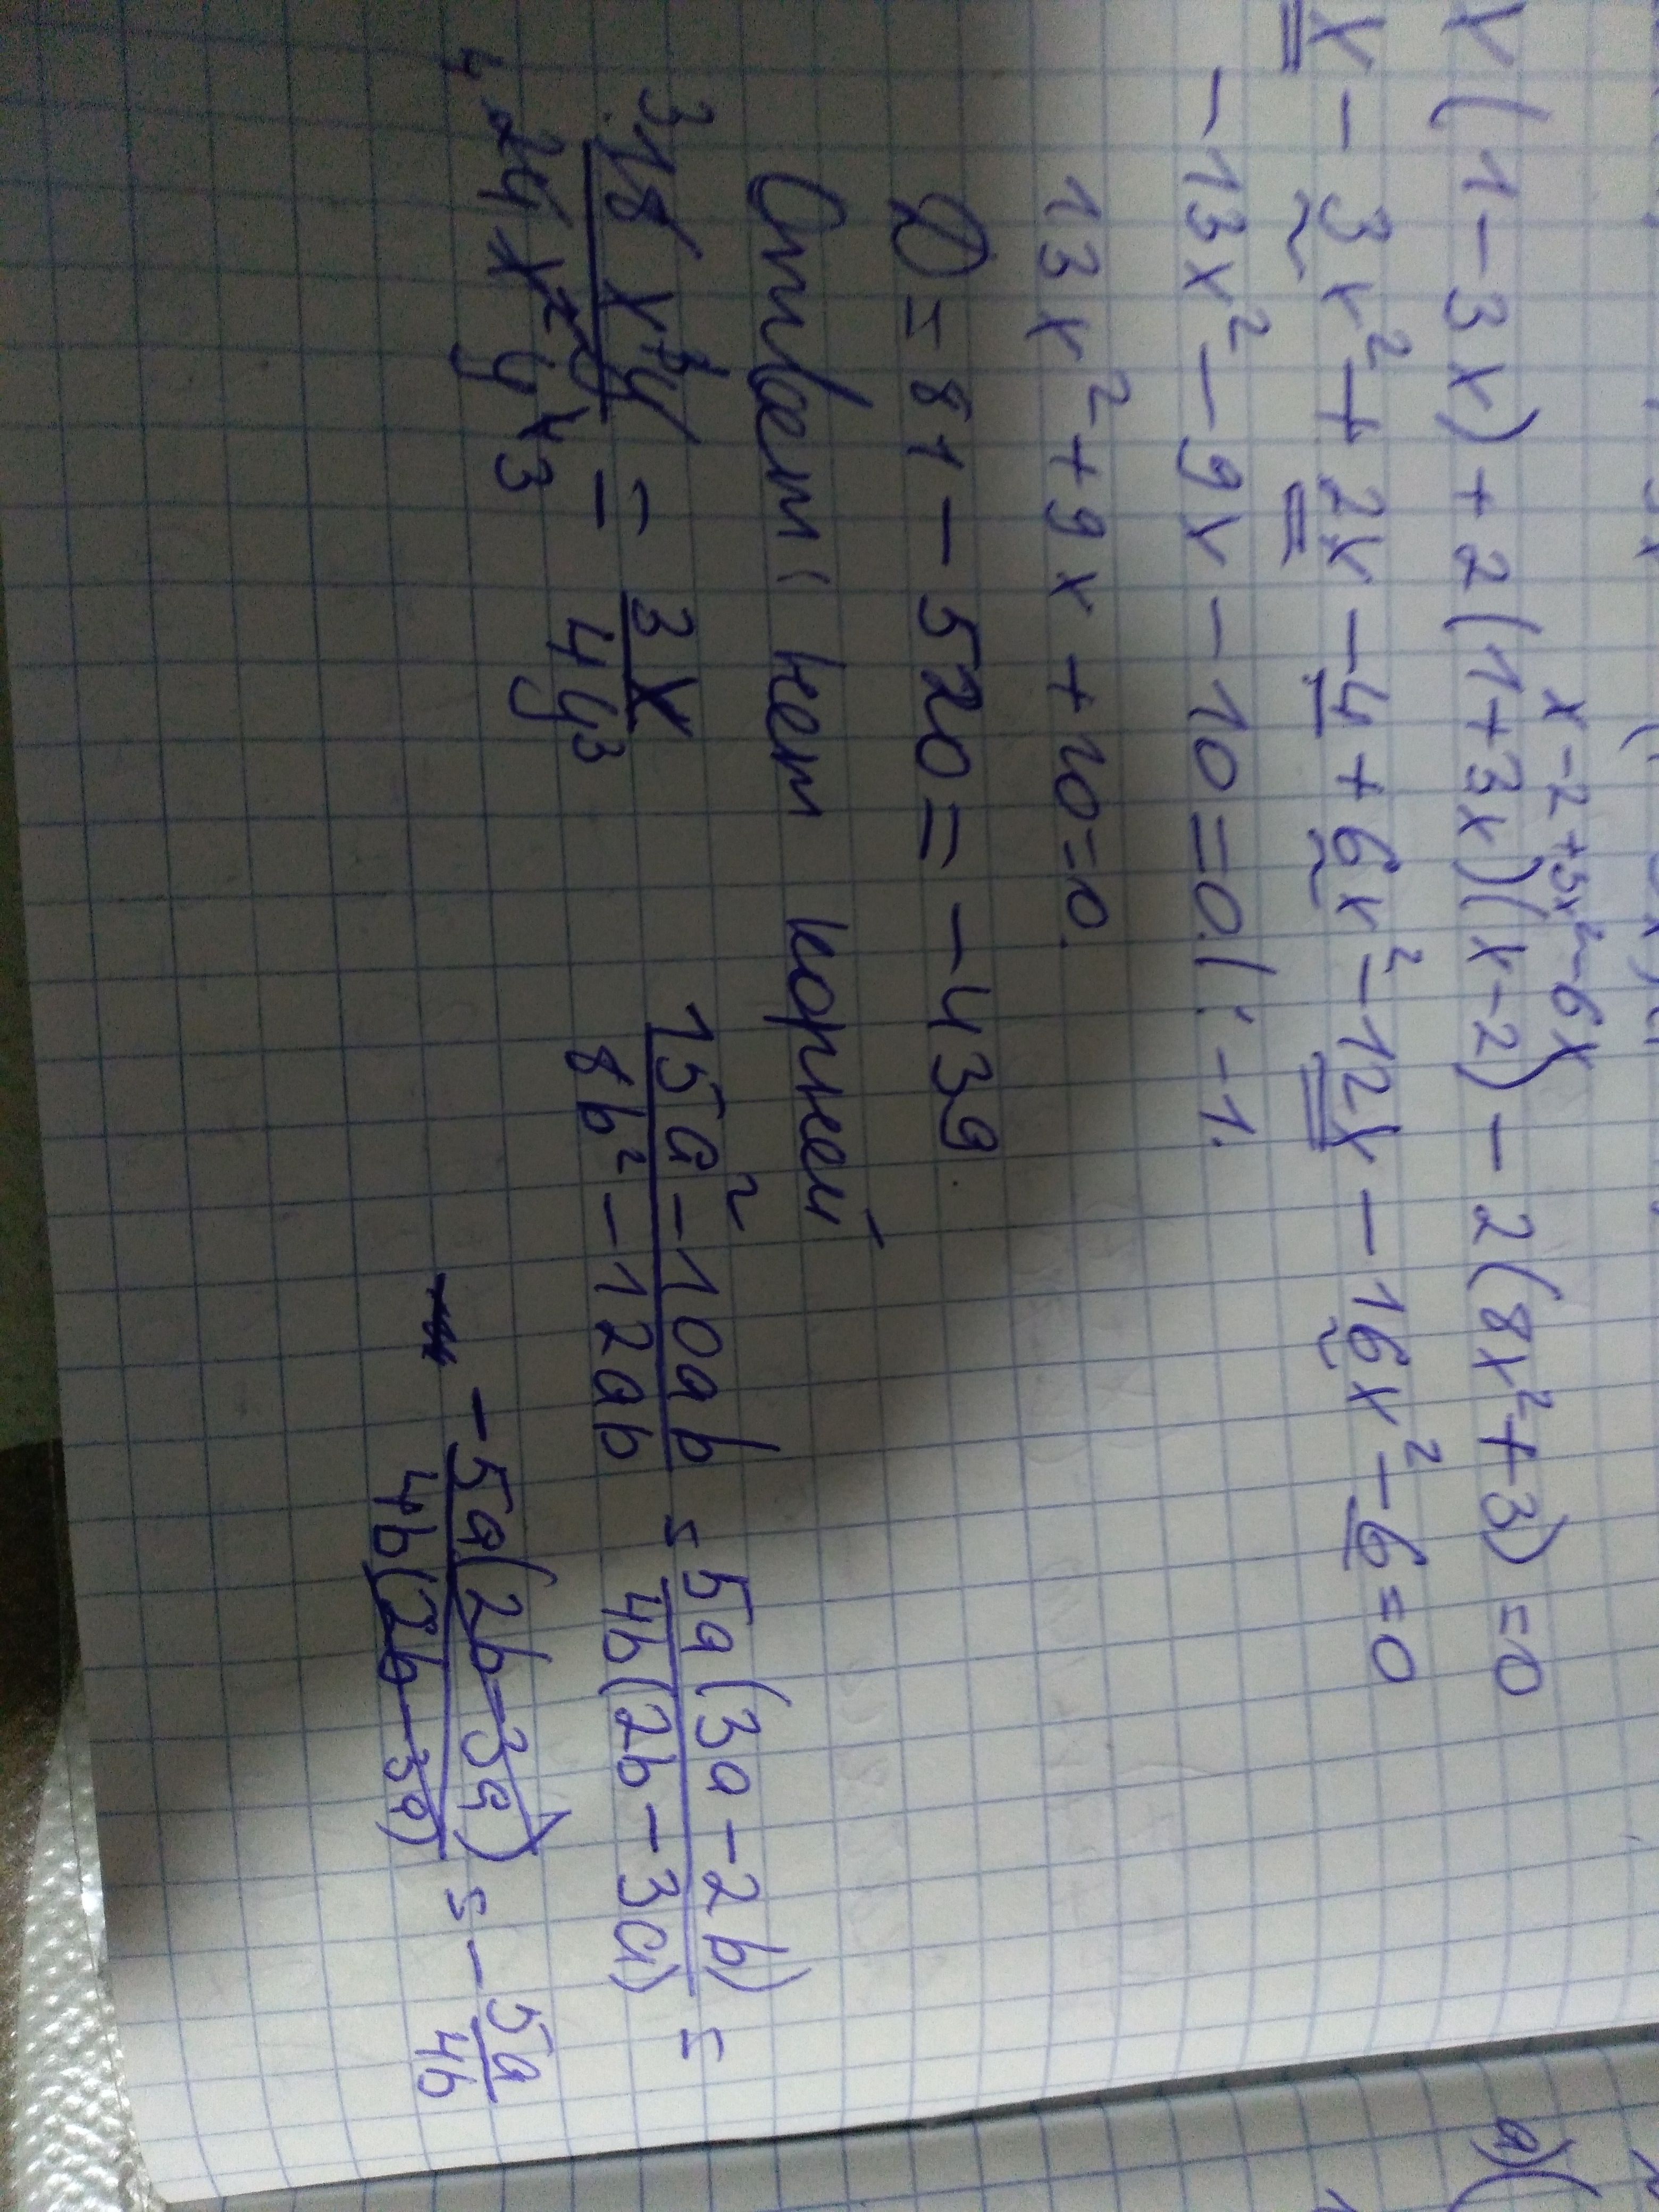 x - 2 + 3x² - 6x
x(1 - 3x) + 2(1 + 3x)(x - 2) - 2(8x² + 3) = 0
x - 3x² + 2x - 4 + 6x² - 12x - 16x² - 6 = 0
-13x² - 9x - 10 = 0 | : -1.
13x² + 9x + 10 = 0.
D = 81 - 520 = -439.
Ответ: нет корней
3 18x³y / 4 24x²y⁴ 3 = 3x / 4y³
15a² - 10ab / 8b² - 12ab = 5a(3a - 2b) / 4b(2b - 3a) =
- 5a(2b - 3a) / 4b(2b - 3a) = - 5a / 4b
a) (